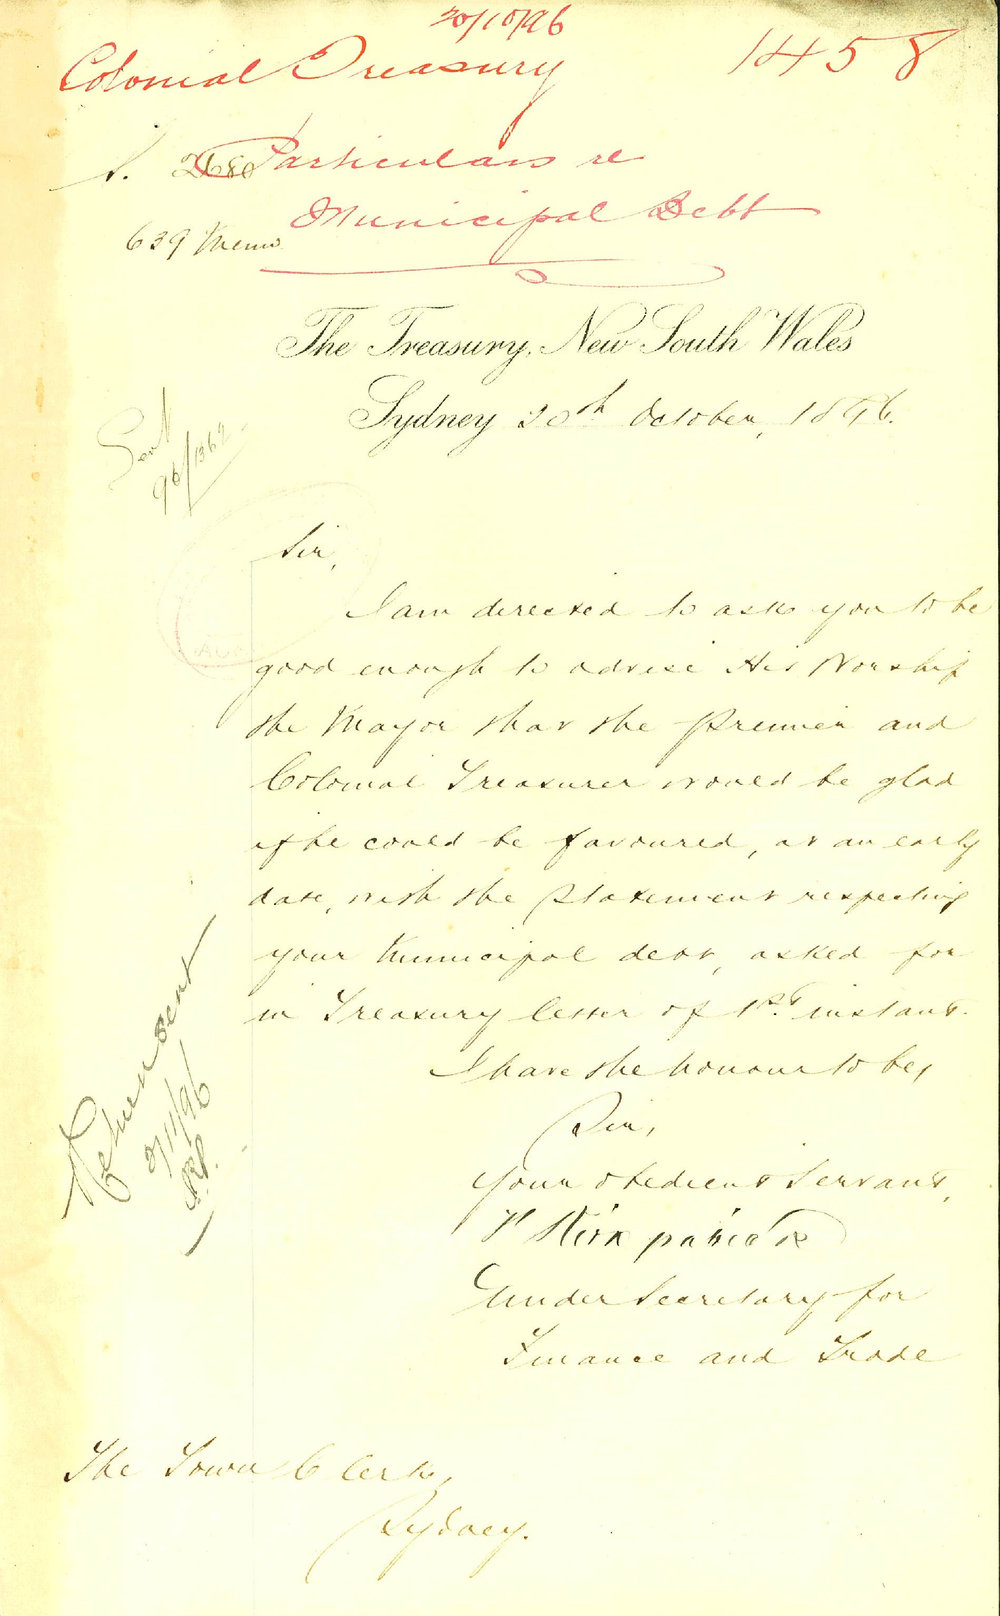 20/10/96
Colonial Treasury
1458
Particulars re
Municipal Debt
639 Memo
The Treasury, New South Wales
Sydney 20th October, 1896.
Sent
96/1362
Sir,
I am directed to ask you to be
good enough to advise His Worship
the Mayor that the Premier and
Colonial Treasurer would be glad
if he could be favoured, at an early
date, with the statement respecting
your Municipal debt, asked for
in Treasury letter of 1st. instant.
I have the honour to be,
Sir,
Your obedient Servant,
F Kirkpatrick
Under Secretary for
Finance and Trade
Return sent
The Town Clerk,
Sydney.